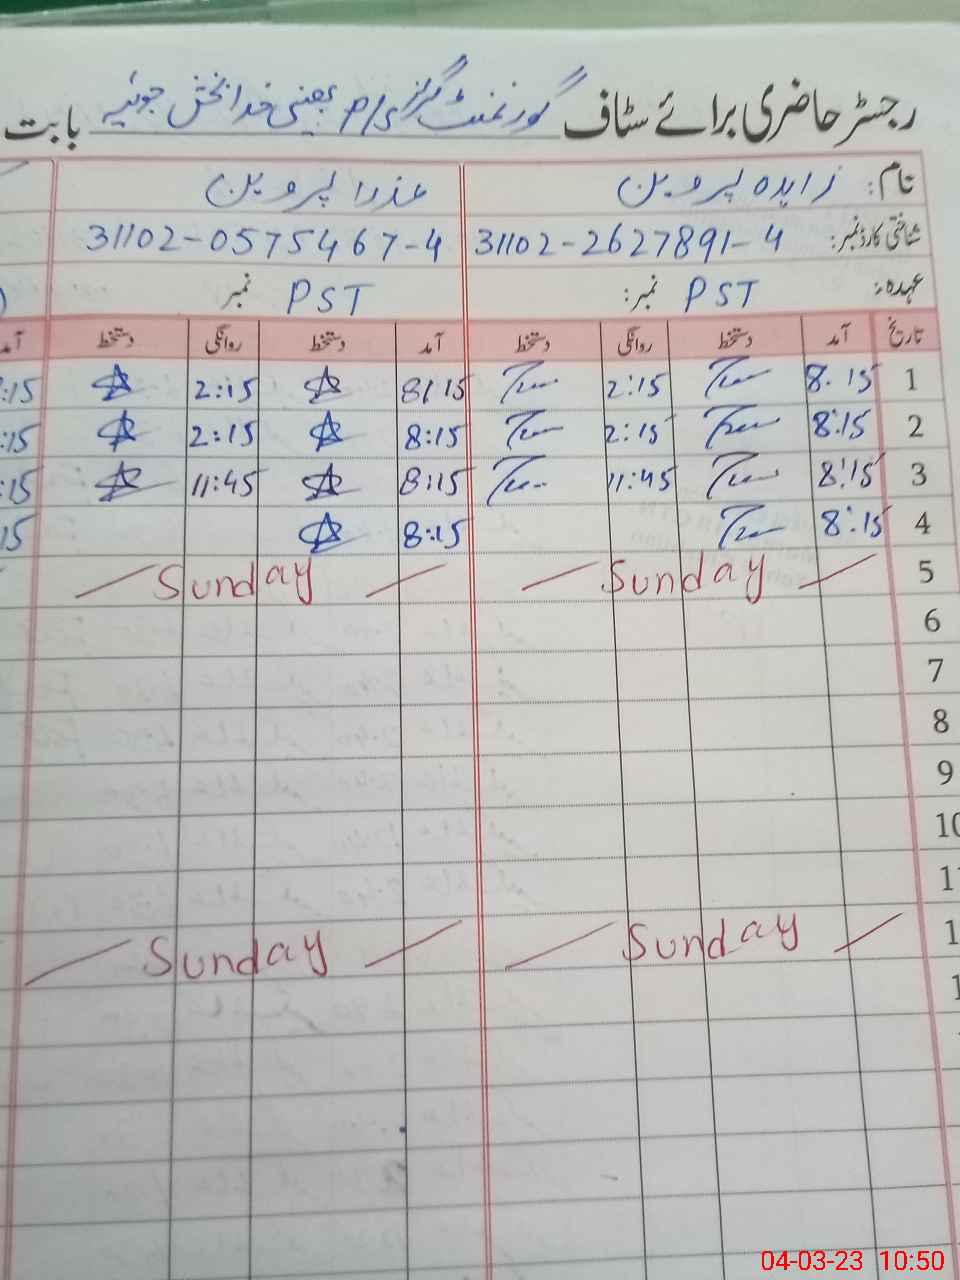 رجسٹر حاضری برائے سٹاف گورنمنٹ گرلز p/s بھینی خدا بخش جوئیہ بابت
نام: زاہدہ پروین عذرا پروین
شناختی کارڈ نمبر: 31102-2627891-4 31102-0575467-4
عہدہ: PST نمبر: PST نمبر
تاریخ آمد دستخط روانگی دستخط آمد دستخط روانگی دستخط آمد
1 8.15 2:15 8:15 2:15 :15
2 8:15 2:15 8:15 2:15 :15
3 8:15 11:45 8:15 11:45 :15
4 8:15 8:15 15
5 Sunday Sunday
6
7
8
9
10
1
1 Sunday Sunday
1
04-03-23 10:50